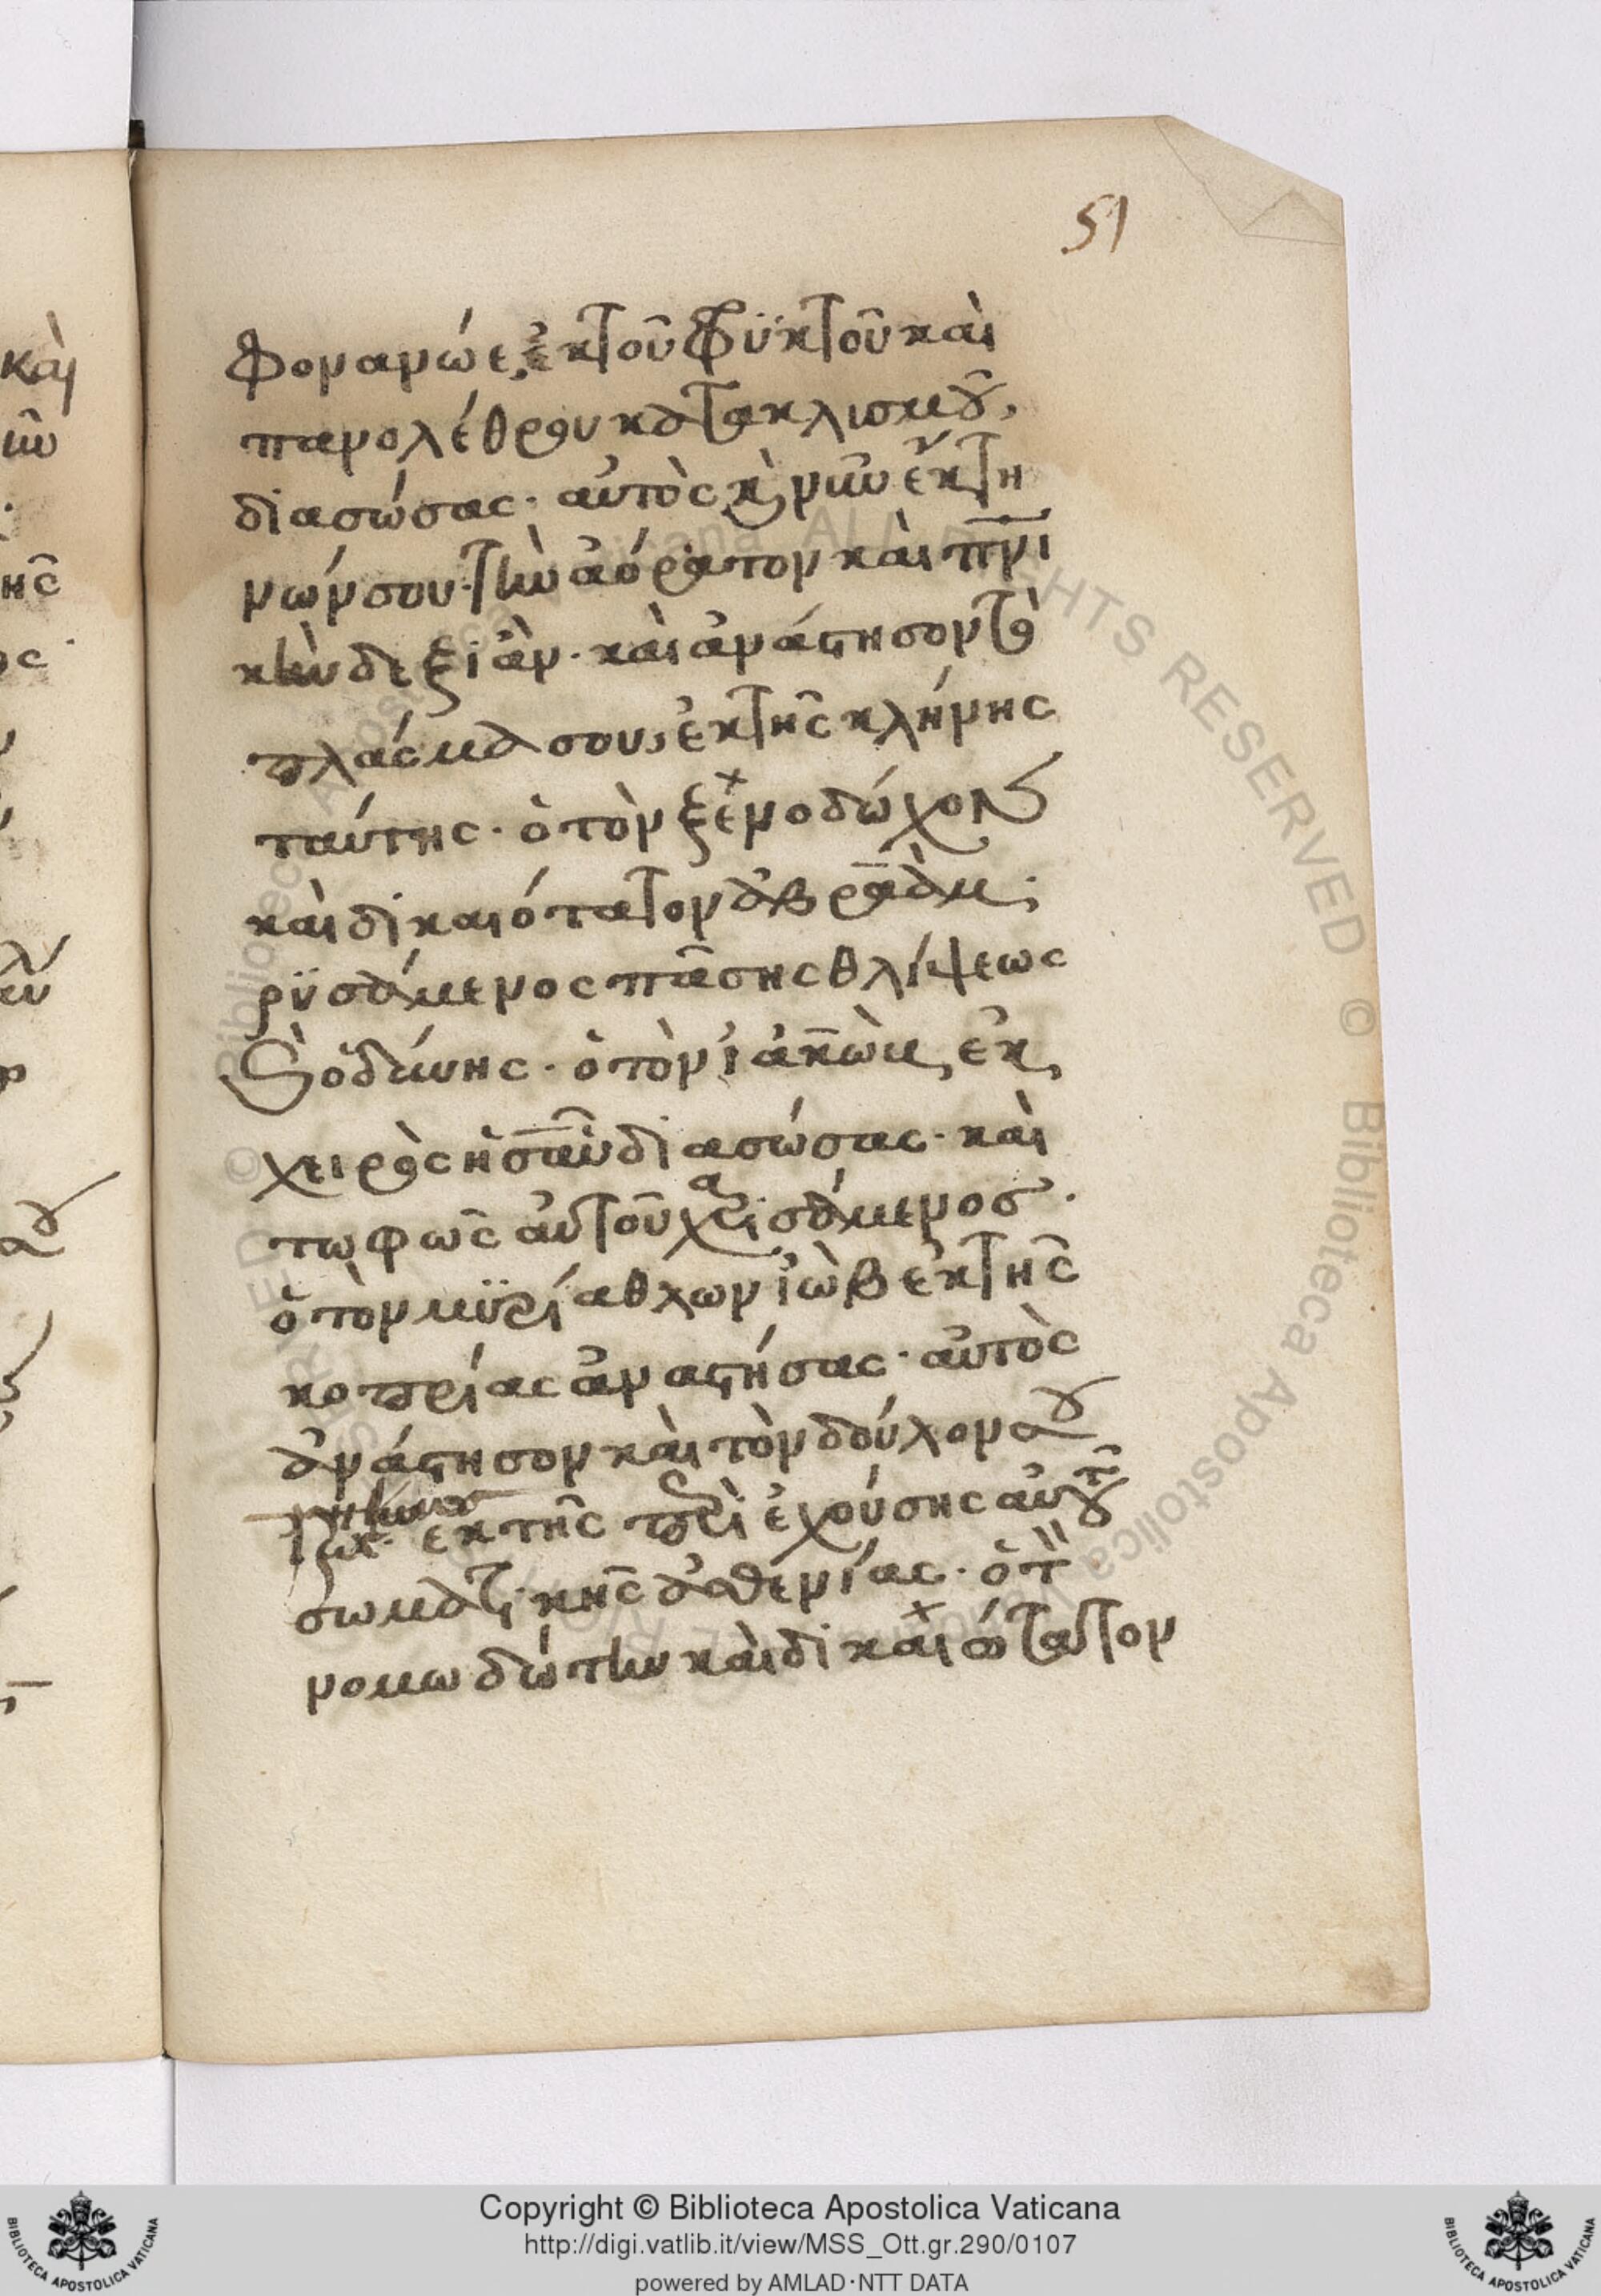 51
φον ανώε, ἐκ τοῦ φϋκτοῦ καὶ
πανολέθρου κατακλισμοῦ,
διασώσας· αὐτὸς κ νῦν ἔκτη
νών σου· τὴν ἀόρατον καὶ πνι
κὴν δεξιὰν· καὶ ἀνάστησον τὸ
πλάσμα σου, ἐκ τῆς κλήνης
ταύτης· ὁ τὸν ξενοδώχον
καὶ δικαιότατον ἀβραὰμ·
ρϋσάμενος πάσης θλίψεως
ὀδύνης· ὁ τὸν ἰακὼμ, ἐκ
χειρὸς ἠσαῦ διασώσας· καὶ
τω φῶς αὐτοῦ χαρισάμενος·
ὁ τὸν μϋρίαθλων ἰὼβ ἐκ τῆς
κοπρίας ἀναστήσας· αὐτὸς
ἀνάστησον καὶ τὸν δούλον σου
ἐκ τῆς περὶ ἐχούσης αὐτοῦ
σωματικῆς ἀσθενίας· ὁ τὸν
νομωδώτην καὶ δικαιώτατον
καὶ
Copyright © Biblioteca Apostolica Vaticana
http://digi.vatlib.it/view/MSS_Ott.gr.290/0107
powered by AMLAD·NTT DATA
BIBLIOTECA APOSTOLICA VATICANA
BIBLIOTECA APOSTOLICA VATICANA